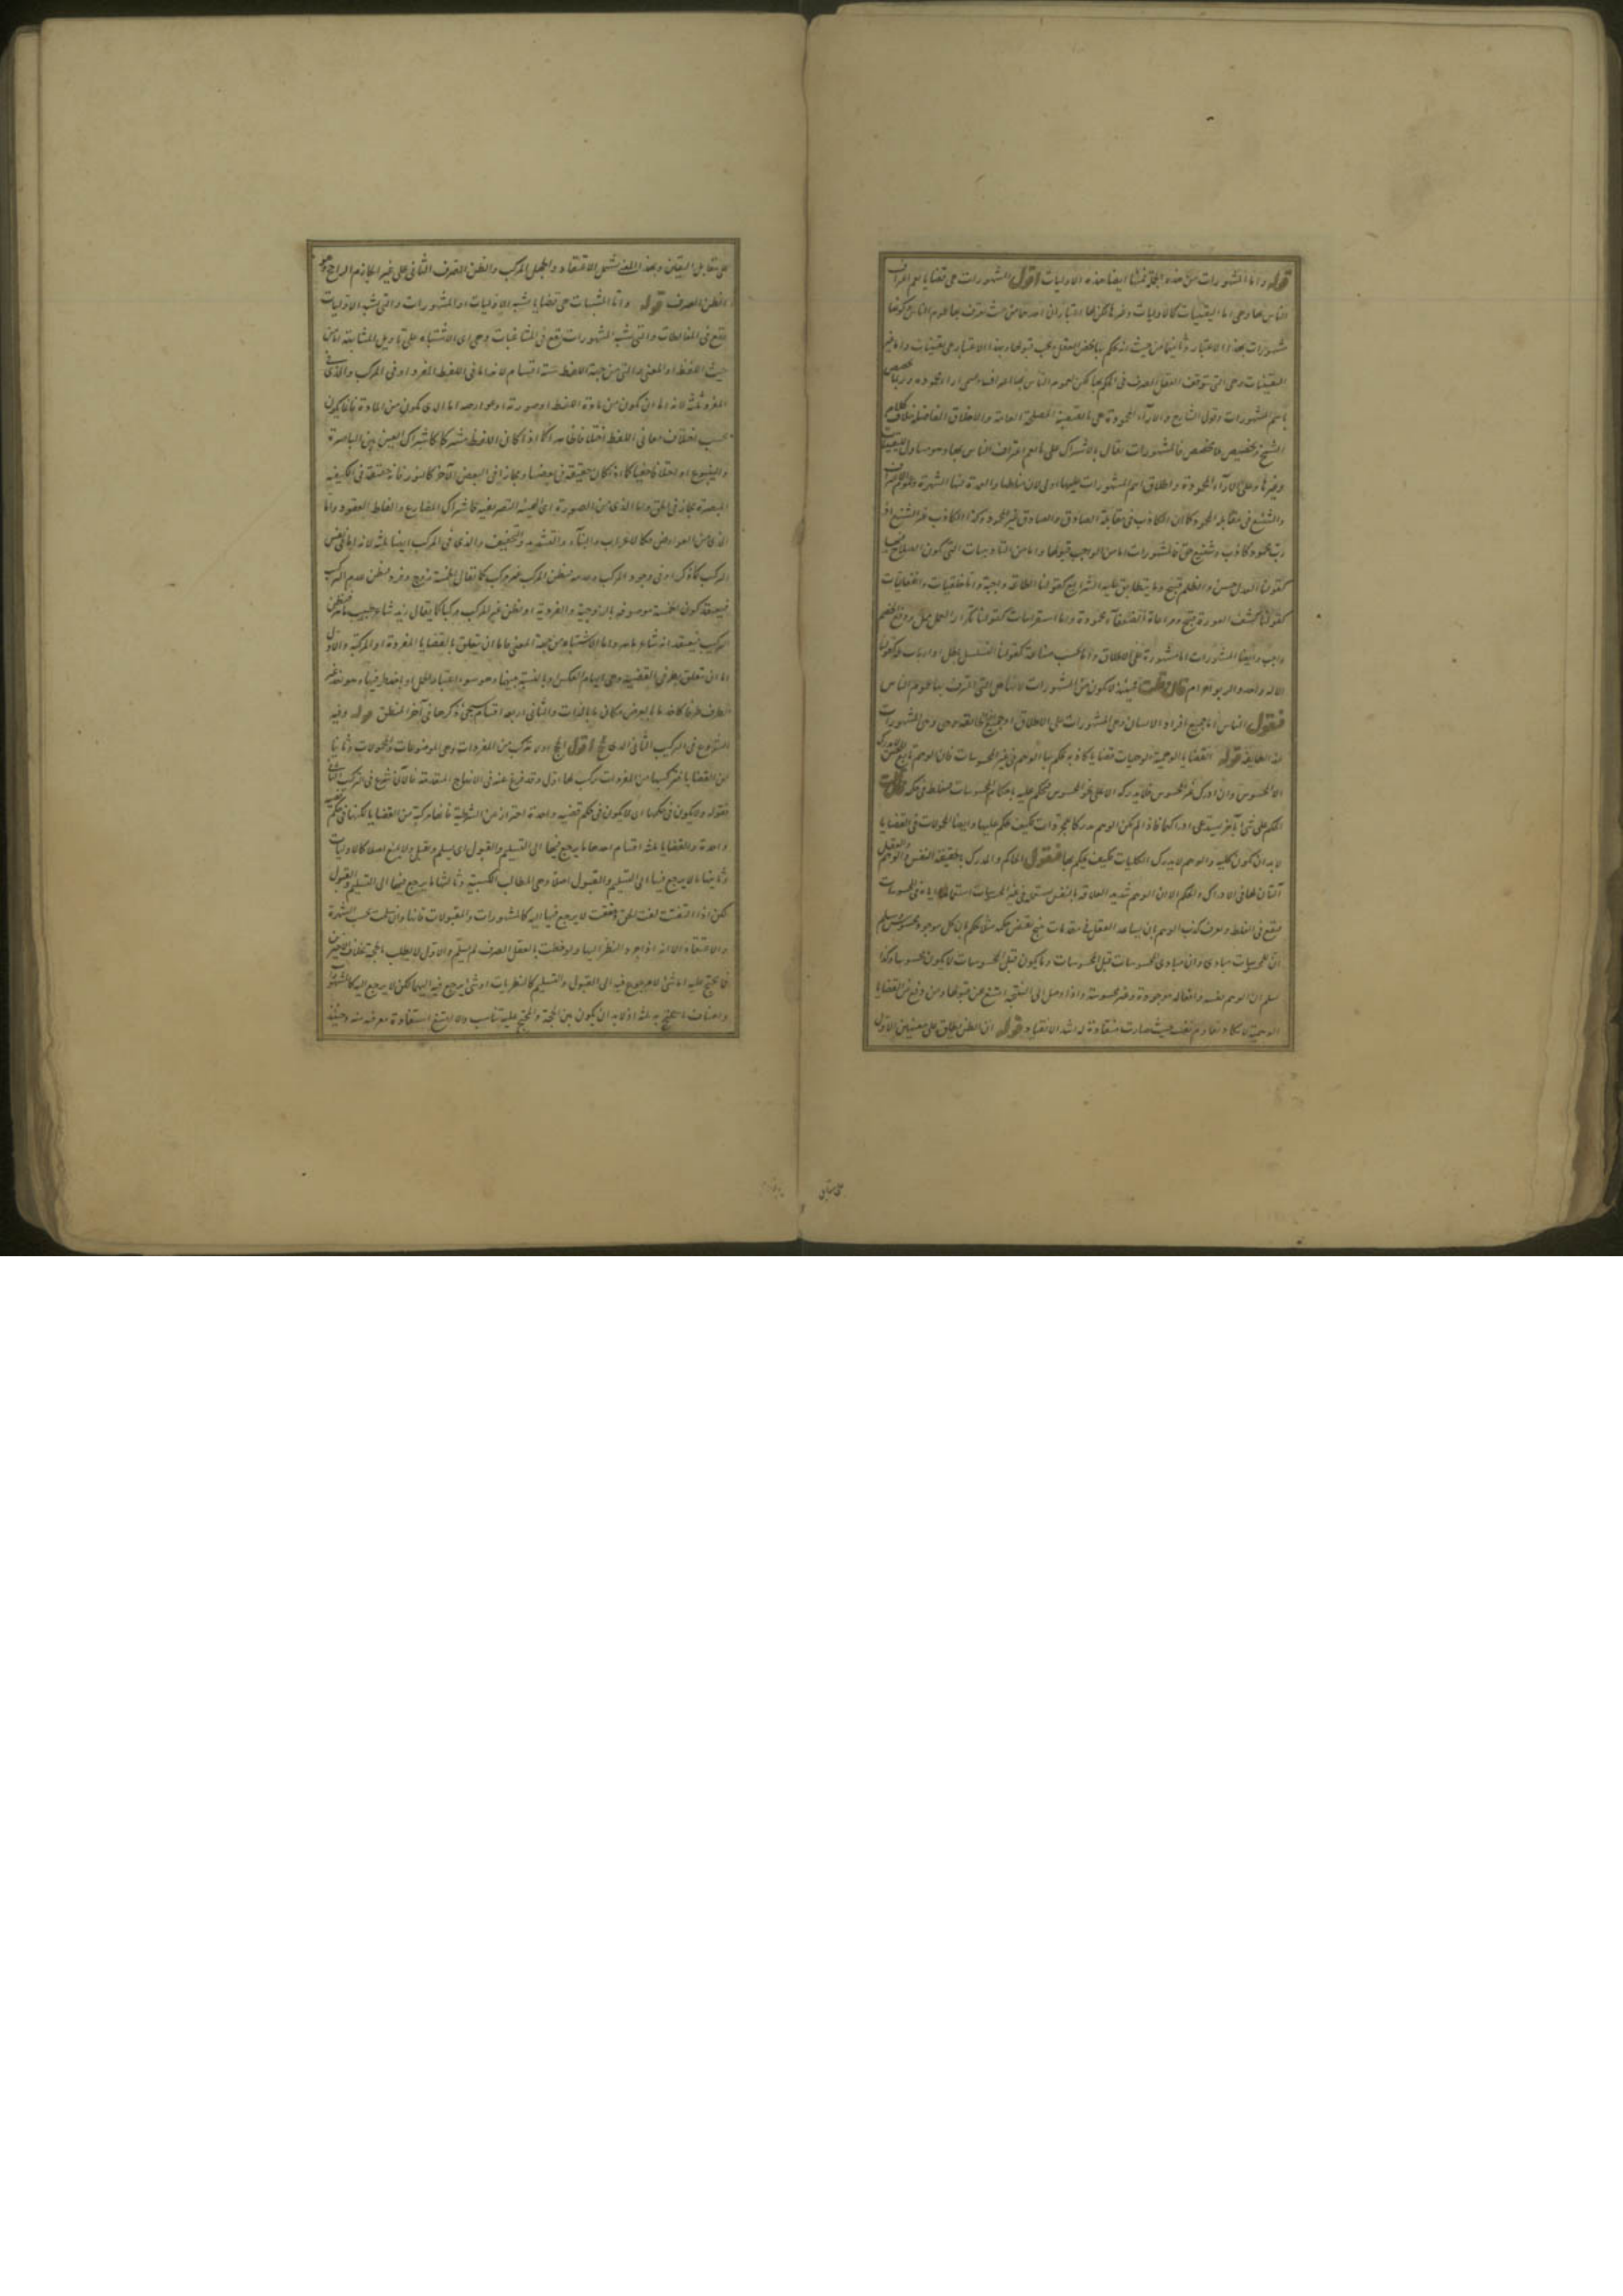 قوله واما المشهورات من هذه الجملة فمنها ايضا هذه الاوليات اقول المشهورات هى قضايا يعم اعتراف
الناس بها وهى اما اليقينيات كالاوليات وغيرها لكن لها اعتباران احدهما من حيث يعترف بها عموم الناس وكونها
مشهورات بهذا الاعتبار وثانيهما من حيث انه يحكم بها محض العقل ويجب قبولها وبهذا الاعتبار هى يقينيات واما غير
اليقينيات وهى التى يتوقف العقل الصرف فى الحكم بها لكن لعموم الناس بها اعتراف ويسمى اراء محمودة وربما يخصص
باسم المشهورات وقول الشارح والاراء المحمودة هى ما يقتضيه المصلحة العامة والاخلاق الفاضلة خلاف كلام
الشيخ وتخصيص بلا مخصص فالمشهورات تقال بالاشتراك على ما يعم اعتراف الناس بها وهو متناول لليقينيات
وغيرها وعلى الاراء المحمودة واطلاق اسم المشهورات عليها اولى لان مناطها والعمدة فيها الشهرة
والشنيع فى مقابلة المحمود كما ان الكاذب فى مقابلة الصادق والصادق غير المحمود وكذا الكاذب غير الشنيع اذ
رب محمود كاذب وشنيع حق فالمشهورات اما من الواجب قبولها واما من التاديبات التى يكون الصلاح فيها
كقولنا العدل حسن والظلم قبيح وما يتطابق عليه الشرايع كقولنا الطاعة واجبة واما خلقيات وانفعاليات
كقولنا كشف العورة قبيح ومراعاة الضعفاء محمودة واما استقرائيات كقولنا تكرار الفعل ممل ودفع الخصم
واجب وايضا المشهورات اما مشهورة على الاطلاق واما بحسب صناعة كقولنا التسلسل باطل او ارباب ملة كقولنا
الاله واحد والربوا حرام فان قلت فحينئذ لا يكون من المشهورات لانها هى التى اعترف بها عموم الناس
فنقول الناس اما جميع افراد الانسان وهى المشهورات على الاطلاق او جميع طائفة وهى المشهورات
عند الطايفة قوله القضايا الوهمية الوهميات قضايا كاذبة يحكم بها الوهم فى غير المحسوسات فان الوهم تابع للحس
الا المحسوس وان ادرك غير المحسوس فلا يدركه الا على نحو المحسوس فيحكم عليه باحكام المحسوسات فيغلط فى حكمه فان قلت
الحكم على شئ بآخر يستدعى ادراكهما فاذا لم يكن الوهم مدركا للمجردات فكيف يحكم عليها وايضا المحمولات فى القضايا
لا بد ان يكون كلية والوهم لا يدرك الكليات فكيف يحكم بها فنقول الحاكم والمدرك بالحقيقة النفس والوهم والعقل
آلتان لها فى الادراك والحكم الا ان الوهم شديد العلاقة بالنفس يستعمله فى غير المحسوسات استعماله اياه فى المحسوسات
فيقع فى الغلط ويعرف كذب الوهم بان يساعد العقل فى مقدمات ينتج نقيض حكمه مثلا يحكم بان كل موجود محسوس ثم يسلم
ان للمحسوسات مبادى وان مبادى المحسوسات قبل المحسوسات وما يكون قبل المحسوسات لا يكون محسوسا وكذا
يسلم ان الوهم نفسه وافعاله موجودة وغير محسوسة واذا وصل الى النتيجة امتنع عن قبولها ومن دفع من القضايا
الوهمية لا يكاد يقاوم نفسه حيث صارت منقادة له اشد الانقياد قوله ان الظن يطلق على معنيين الاول
على مقابل
على مقابل اليقين وبهذا المعنى يشمل الاعتقاد والجهل المركب والظن الصرف الثانى على غير الجازم الراجح وهو
الظن الصرف قوله واما المشبهات هى قضايا يشبه الاوليات او المشهورات والتى تشبه الاوليات
يقع فى المغالطات والتى تشبه المشهورات يقع فى المشاغبات وهى اى الاشتباه على تاويل المشابهة اما من
حيث اللفظ او المعنى والتى من جهة اللفظ ستة اقسام لانه اما فى اللفظ المفرد او فى المركب والذى فى
المفرد ثلثة لانه اما ان يكون من مادة اللفظ او صورته او عوارضه اما الذى يكون من المادة فاما يكون
بحسب اختلاف معانى اللفظ اختلافا ظاهرا كما اذا كان اللفظ مشتركا كاشتراك العين بين الباصرة
والينبوع او اختلافا خفيا كما اذا كان حقيقة فى بعضها ومجازا فى البعض الآخر كالنور فانه حقيقة فى الكيفية
المبصرة مجاز فى الحق واما الذى من الصورة اى الهيئة التصريفية كاشتراك المضارع والفاظ العقود واما
الذى من العوارض فكالاعراب والبناء والتشديد والتخفيف والذى فى المركب ايضا ثلثة لانه اما فى نفس
التركيب كما ذكر او فى وجود المركب وعدمه فيظن المركب غير مركب كما يقال الخمسة زوج وفرد فيظن عدم التركيب
فيعتقد كون الخمسة موصوفة بالزوجية والفردية او يظن غير المركب مركبا كما يقال زيد شاعر طبيب ماهر فيظن
التركيب فيعتقد انه شاعر ماهر واما الاشتباه من جهة المعنى فاما ان يتعلق بالقضايا المفردة او المركبة والاول
اما ان يتعلق بطرفى القضية وهى ايهام العكس او بالنسبة بينهما وهو سوء اعتبار الحمل او باحد طرفيها وهو اخذ غير
الطرف طرفا كاخذ ما بالعرض مكان ما بالذات والثانى اربعة اقسام سيجئ ذكرها فى آخر المنطق قوله وفيه
الشروع فى التركيب الثانى الذى للحجج اقول الحجج اولا تتركب من المفردات وهى الموضوعات والمحمولات وثانيا
من القضايا فتركيبها من المفردات تركيب لها اول وقد فرغ عنه فى الانهاج المتقدمة فالآن شرع فى التركيب الثانى
فقوله ولا يكون فى حكمها ان لا يكون فى حكم قضية واحدة احترز عن الشرطية فانها مركبة من القضايا لكنها فى حكم قضية
واحدة والقضايا ثلثة اقسام احدها ما يرجع فيها الى التسليم والقبول اى يسلم ويقبل ولا يمنع اصلا كالاوليات
وثانيها ما لا يرجع فيها الى التسليم والقبول اصلا وهى المطالب الكسبية وثالثها ما يرجع فيها الى التسليم والقبول
لكن اذا التفتت لفت الحق وحققت لا يرجع فيها اليه كالمشهورات والمقبولات فانها وان سلمت بحسب الشهرة
والاعتقاد الا انه اذا جرد النظر اليها ولوحظت بالعقل الصرف لم يسلم والاول لا يطلب بالحجة بخلاف الاخيرين
فما يحتج عليه اما شئ لا يرجع فيه الى القبول والتسليم كالنظريات او شئ يرجع فيه اليهما لكن لا يرجع اليه كالمشهورات
واصناف ما يحتج به ثلثة اذ لا بد ان يكون بين الحجة والمحتج عليه تناسب والا امتنع استفادة معرفة منه وحينئذ